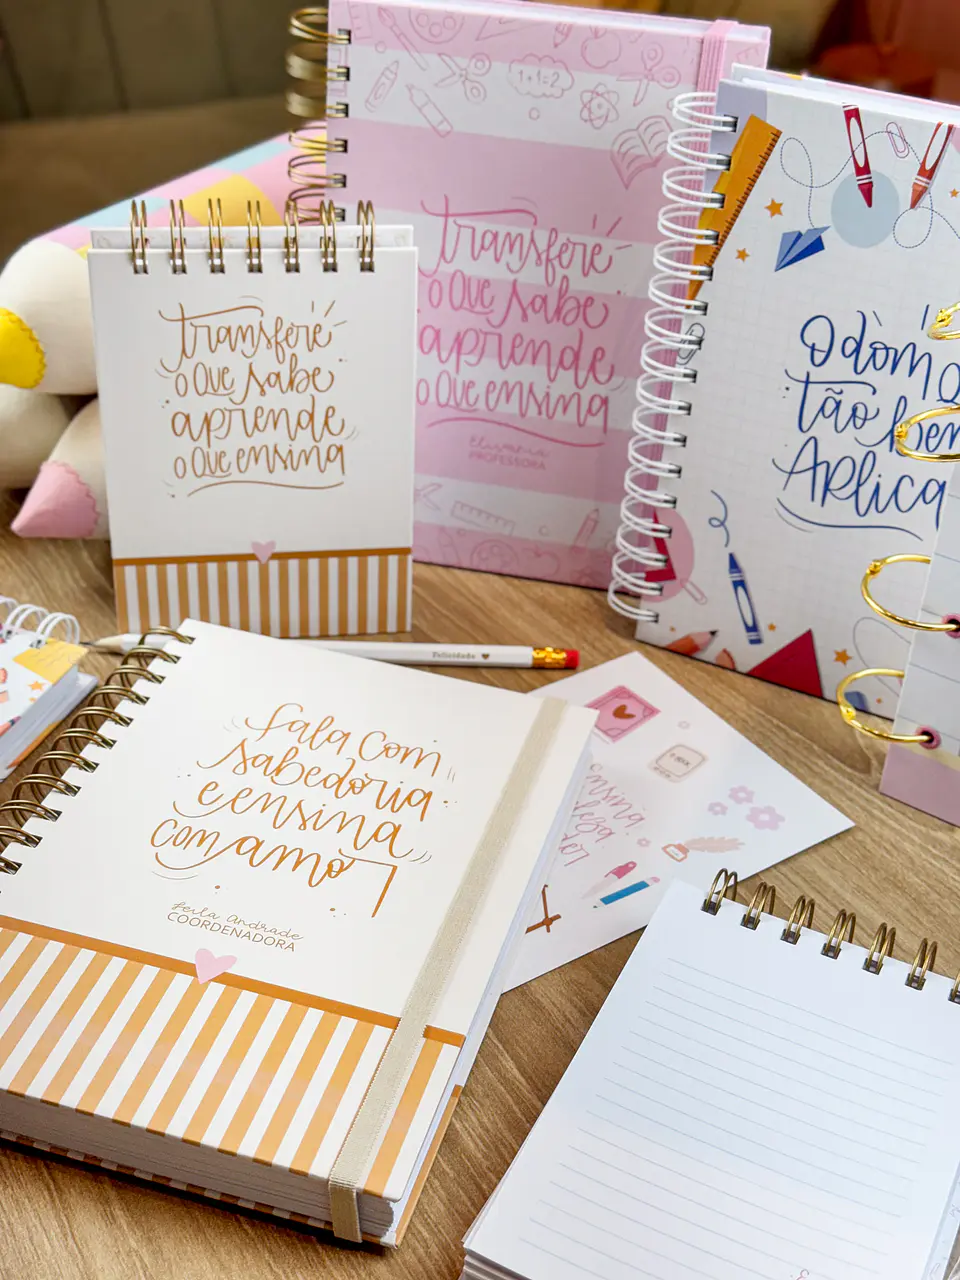 1+1=2
transferé
o que sabe
aprende
o que ensina
Elisania
PROFESSORA
transferé
o que sabe
aprende
o que ensina
O dom
tão bem
Aplica
Felicidade
Fala com
sabedoria
e ensina
com amor
Leila Andrade
COORDENADORA
ensina